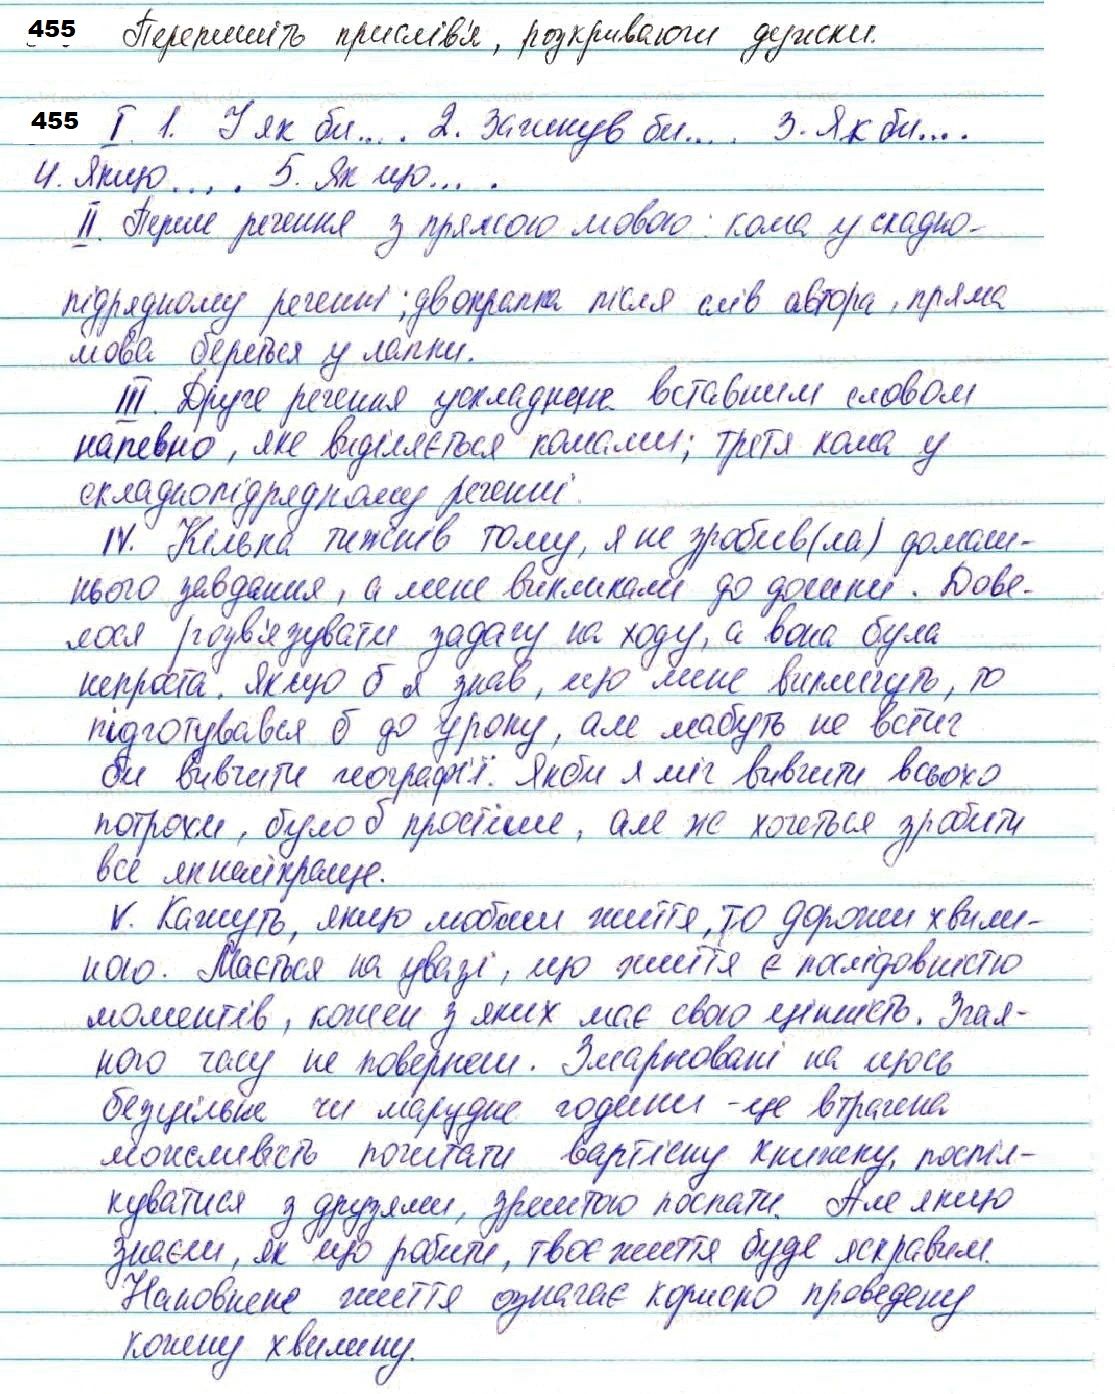 455 Перепишіть прислів'я, розкриваючи дужки.
455 I. 1. І як би... . 2. Загинув би... . 3. Як би... .
4. Якщо... . 5. Як що... .
II. Перше речення з прямою мовою: кома у складно-
підрядному реченні; двокрапка після слів автора, пряма
мова береться у лапки.
III. Друге речення ускладнене вставним словом
напевно, яке виділяється комами; третя кома у
складнопідрядному реченні.
IV. Кілька тижнів тому, я не зробив(ла) домаш-
нього завдання, а мене викликали до дошки. Дове-
лося розв'язувати задачу на ходу, а вона була
непроста. Якщо б я знав, що мене викличуть, то
підготувався б до уроку, але мабуть не встиг
би вивчити географії. Якби я міг вивчити всього
потрохи, було б простіше, але ж хочеться зробити
все якнайкраще.
V. Кажуть, якщо любиш життя, то дорожи хвили-
ною. Мається на увазі, що життя є послідовністю
моментів, кожен з яких має свою цінність. Згая-
ного часу не повернеш. Змарновані на щось
безцільне чи марудне години - це втрачена
можливість почитати вартісну книжку, поспіл-
куватися з друзями, зрештою поспати. Але якщо
знаєш, як що робити, твоє життя буде яскравим.
Наповнене життя означає корисно проведену
кожну хвилину.